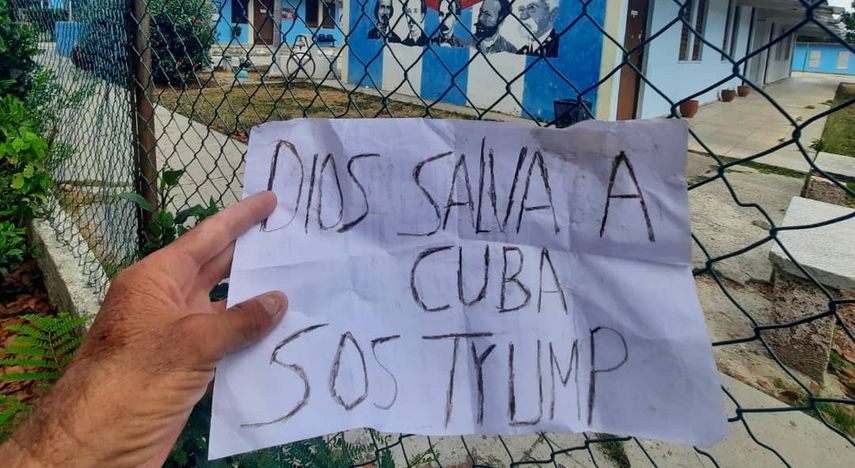 DIOS SALVA A
CUBA
SOS TYUMP